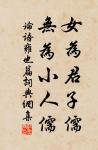 女為君子儒
無為小人儒
論語雍也篇詞典網集